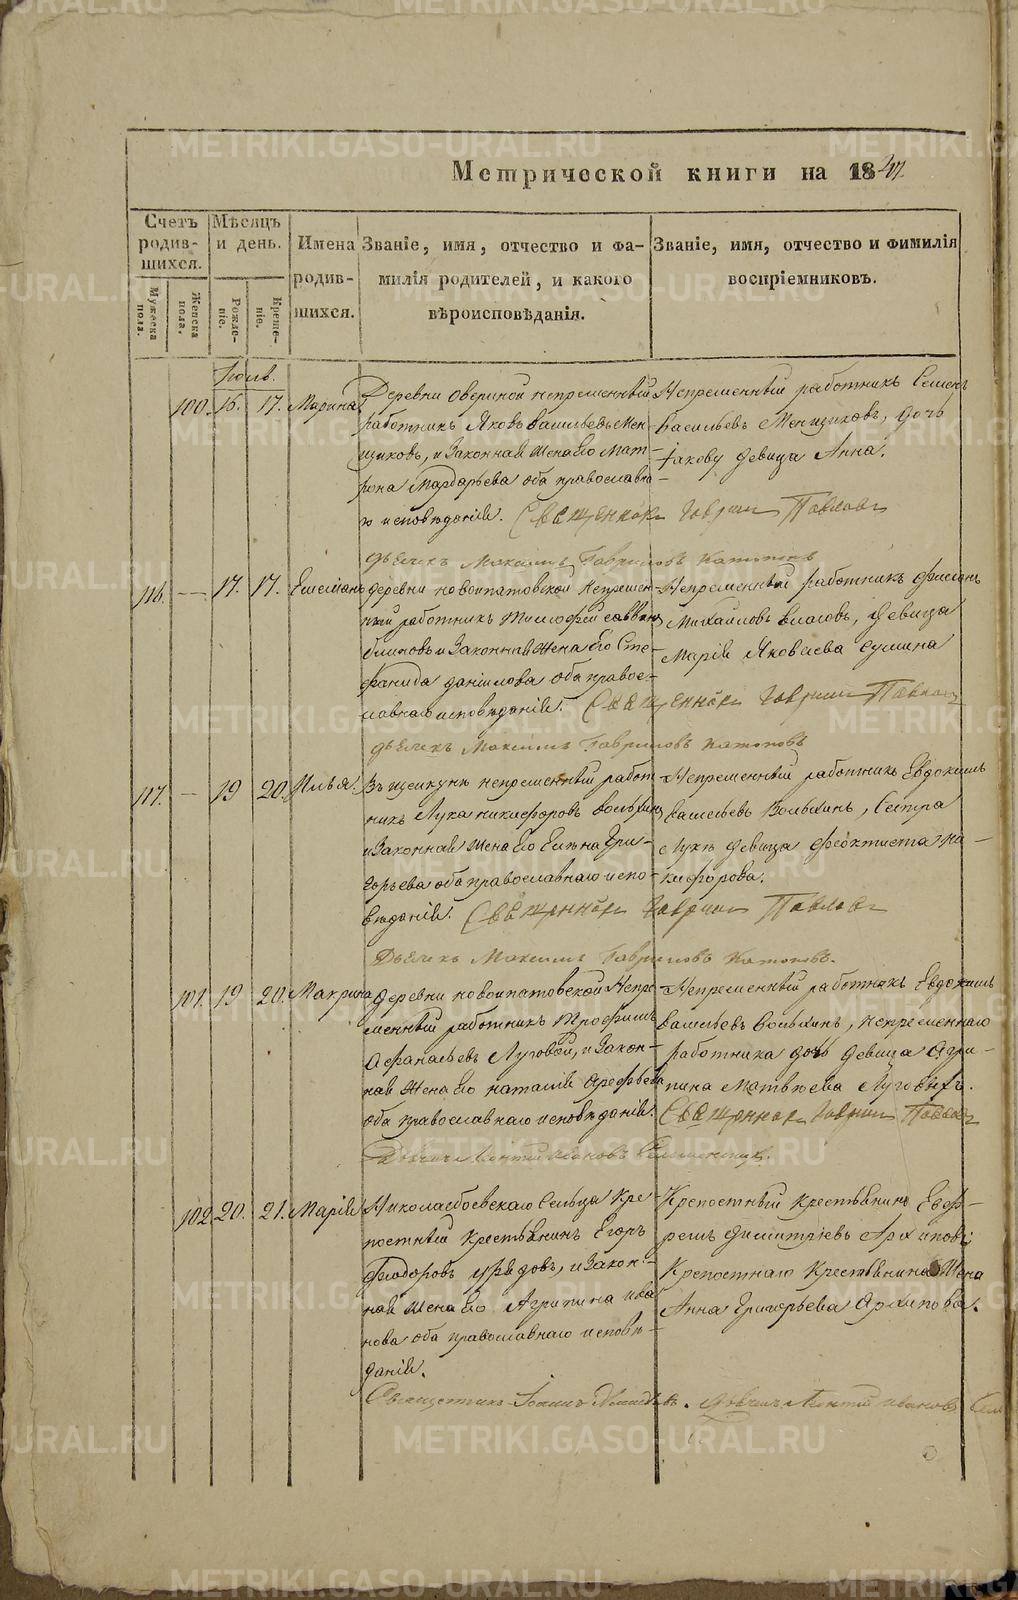 METRIKI.GASO-URAL.RU
Метрической книги на 18
Счетъ родив-шихся.
Мужеска пола.
Женска пола.
Мѣсяцъ и день.
Рожде-ніе.
Креще-ніе.
Имена родив-шихся.
Званіе, имя, отчество и фа-
милія родителей, и какого
вѣроисповѣданія.
Званіе, имя, отчество и фимилія
воспріемниковъ.
Іюль.
100. 16. 17. Марина
Деревни Овериной непременный
работникъ Яковъ Васильевъ Мен-
щиковъ, и Законная жена Его Мат-
рена Мардарьева оба православна-
го исповѣданія. Священникъ Гавриилъ Павловъ
Непременный работникъ Семенъ
Васильевъ Менщиковъ, дочь
Iакову девица Анна.
Дьячекъ Максимъ Гавриловъ
116. — 17. 17. Емелианъ
деревни новоипатовской Непремен-
ный работникъ Тимофей Саввинъ
и Законная жена Его Сте-
фанида данилова оба правос-
лавнаго исповѣданія. Священникъ Гавриилъ Павловъ
Непременный работникъ
Михайловъ Власовъ, девица
Марія Яковлева
Дьячекъ Максимъ Гавриловъ
117. — 19 20. Илья.
Въ щелкунѣ непременный работ-
никъ Лука никифоровъ Вольхинъ
и Законная жена Его Елена Гри-
горьева оба православнаго испо-
вѣданія. Священникъ Гавриилъ Павловъ
Непременный работникъ Евдокимъ
Васильевъ Вольхинъ, Сестра
Лукѣ девица феоктиста ни-
кифорова.
Дьячекъ Максимъ Гавриловъ
101. 19 20. Макрина
деревни новоипатовской Непре-
менный работникъ Трофимъ
Афанасьевъ Луговой, и Закон-
ная жена Его наталія Арефьева
оба православнаго исповѣданія. Священникъ Гавриилъ Павловъ
Непременный работникъ Евдокимъ
Васильевъ Вольхинъ, непременнаго
работника дочь девица Агри-
пина Матвеева
Дьячекъ Леонтій Ивановъ
102 20. 21. Марія
Сельца Кре-
постный Крестьянинъ Егоръ
Феодоровъ и Закон-
ная жена Его Агрипина ива-
нова оба православнаго исповѣ-
данія.
Крепостный крестьянинъ Ефр-
емъ димитріевъ Архиповъ
Крепостнаго Крестьянина Жена
Анна Григорьева Архипова.
Священникъ Іоаннъ
Дьячекъ Леонтій Ивановъ